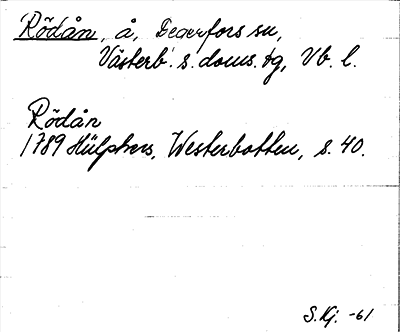 Rödån, å, Degerfors sn,
Västerb. s. doms. tg, Vb. l.
Rödån
1789 Hülphers, Westerbotten, s. 40.
S.Kj. -61